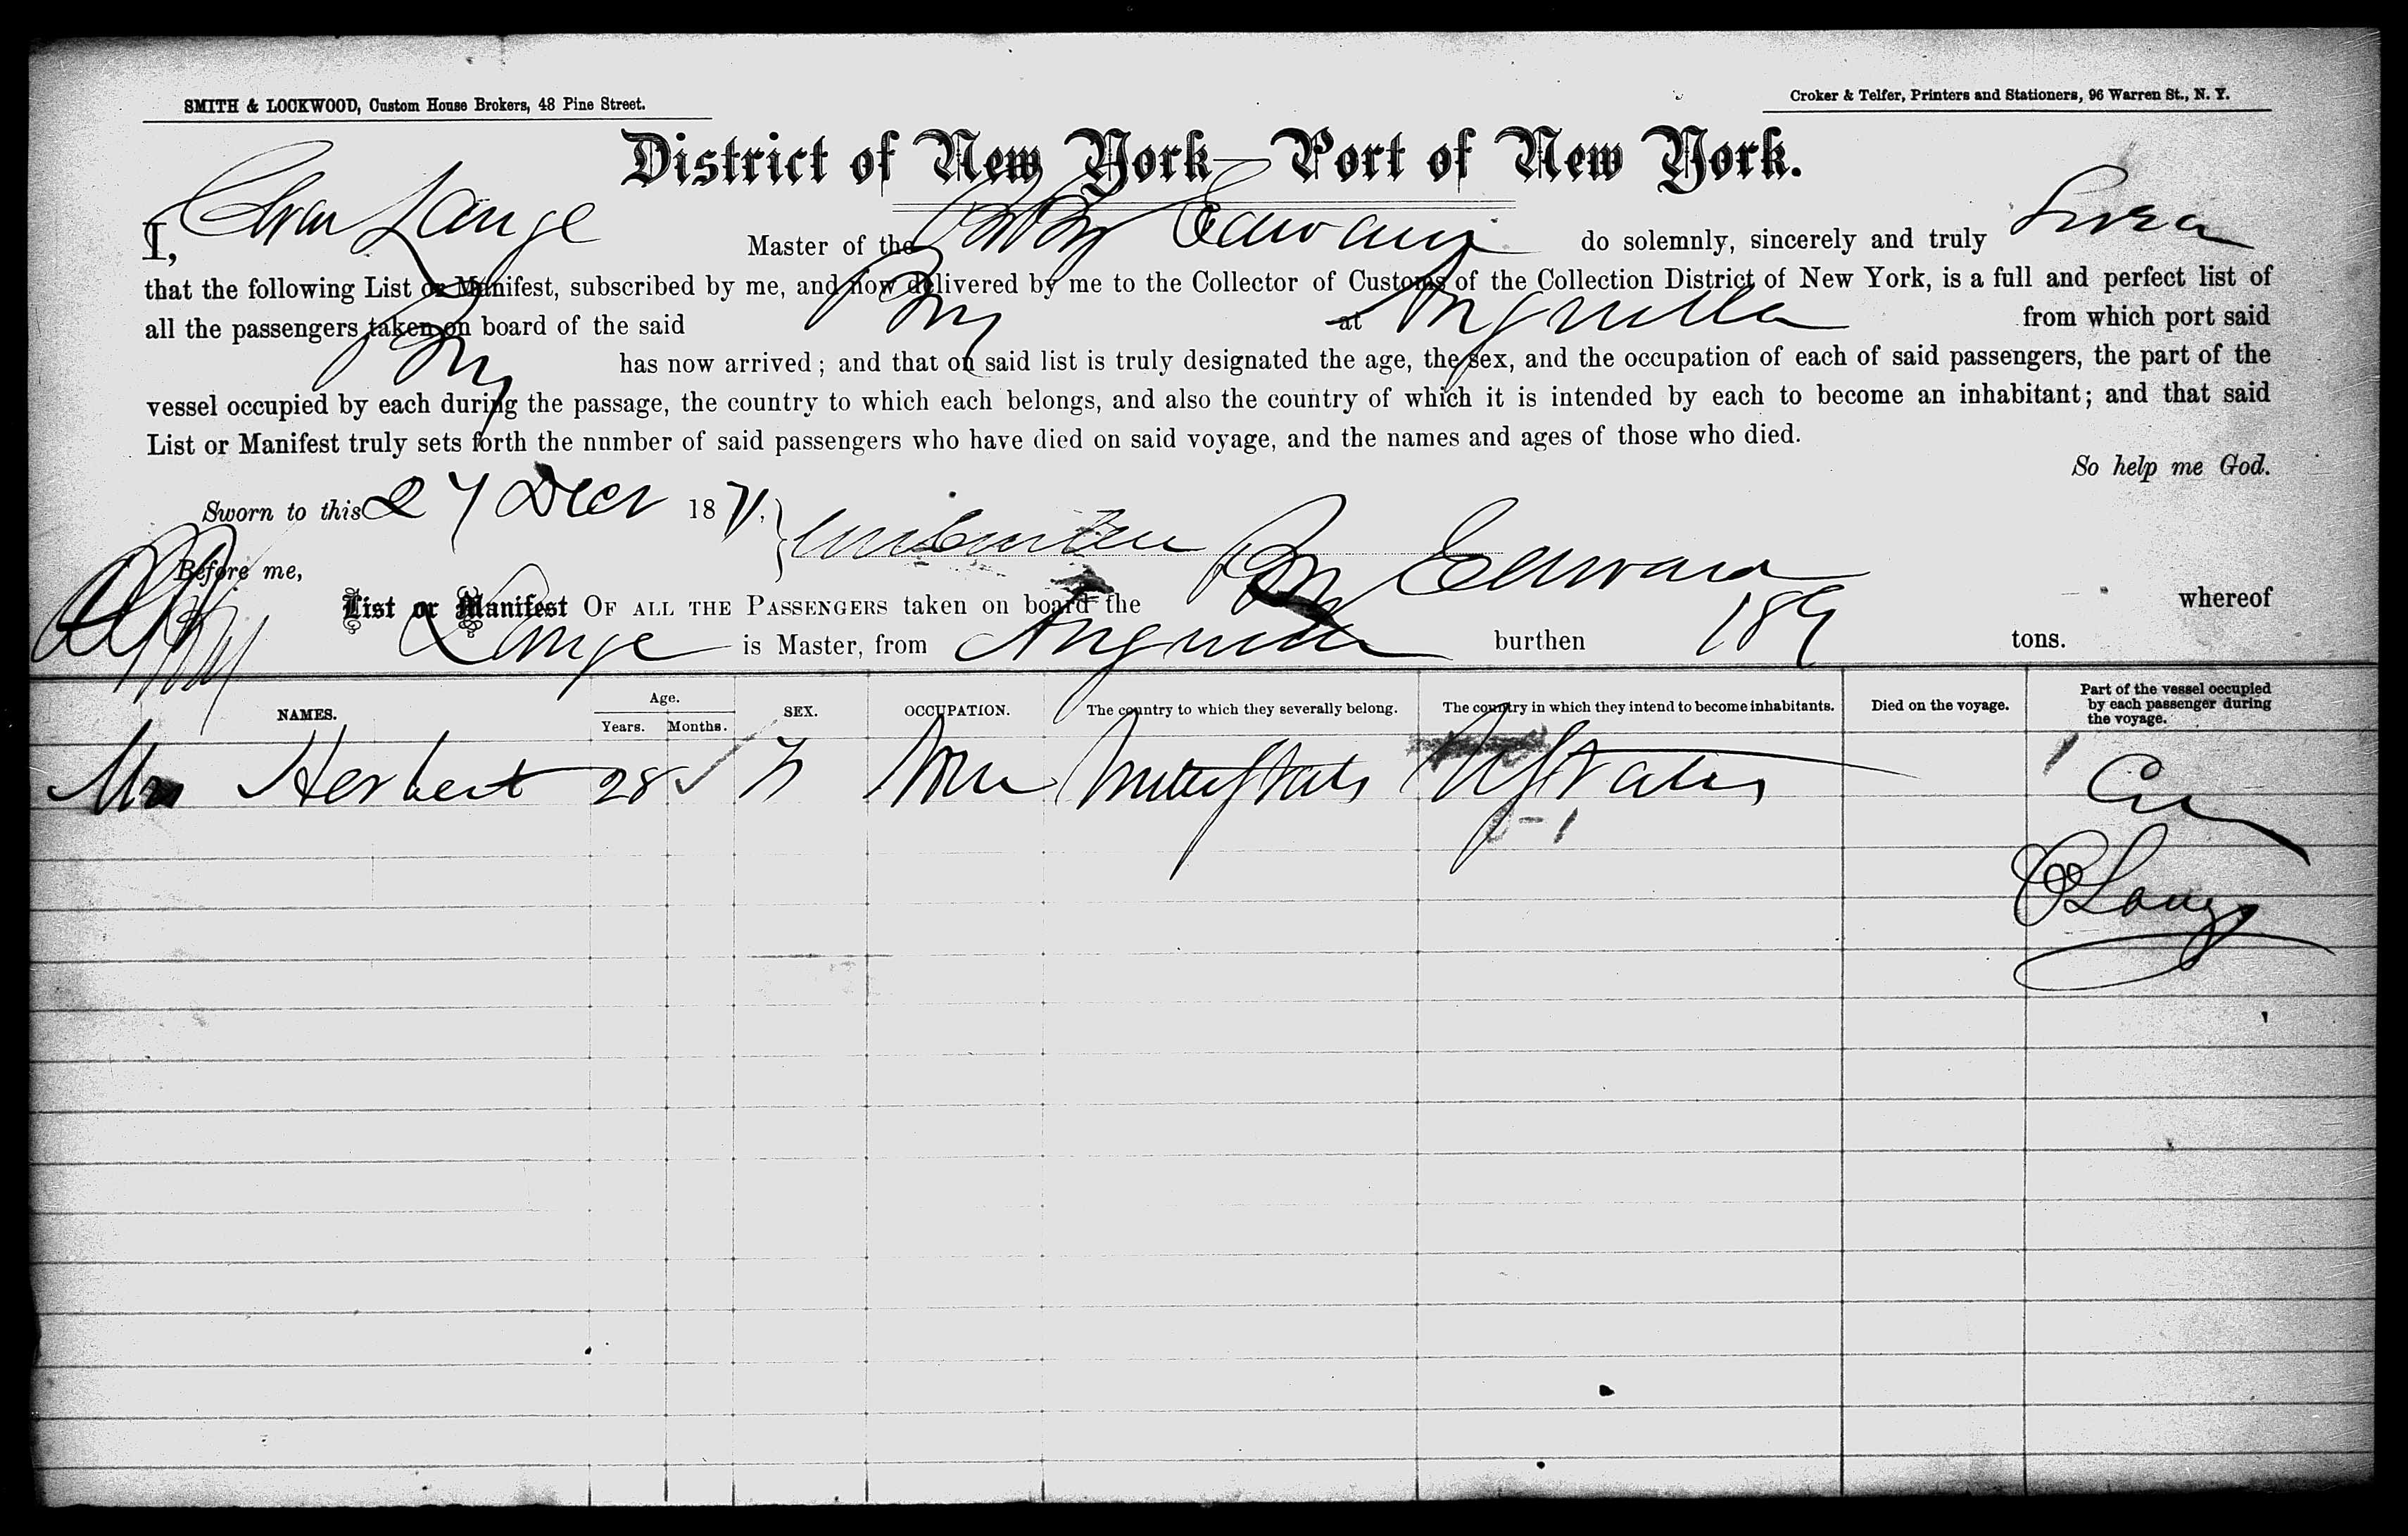 SMITH & LOCKWOOD, Custom House Brokers, 48 Pine Street.
Croker & Telfer, Printers and Stationers, 96 Warren St., N. Y.
District of New York—Port of New York.
I, Lange Master of the Brig Edward do solemnly, sincerely and truly Swear
that the following List or Manifest, subscribed by me, and now delivered by me to the Collector of Customs of the Collection District of New York, is a full and perfect list of
all the passengers taken on board of the said Brig at Anguilla from which port said
Brig has now arrived; and that on said list is truly designated the age, the sex, and the occupation of each of said passengers, the part of the
vessel occupied by each during the passage, the country to which each belongs, and also the country of which it is intended by each to become an inhabitant; and that said
List or Manifest truly sets forth the number of said passengers who have died on said voyage, and the names and ages of those who died.
So help me God.
Sworn to this 27 Decr 1871.
Before me,
List or Manifest OF ALL THE PASSENGERS taken on board the Brig Edward whereof
Lange is Master, from Anguilla burthen 189 tons.
NAMES. Age. Years. Months. SEX. OCCUPATION. The country to which they severally belong. The country in which they intend to become inhabitants. Died on the voyage. Part of the vessel occupied by each passenger during the voyage.
Mrs Herbert 28 ✓ F None United States U States
C Lange